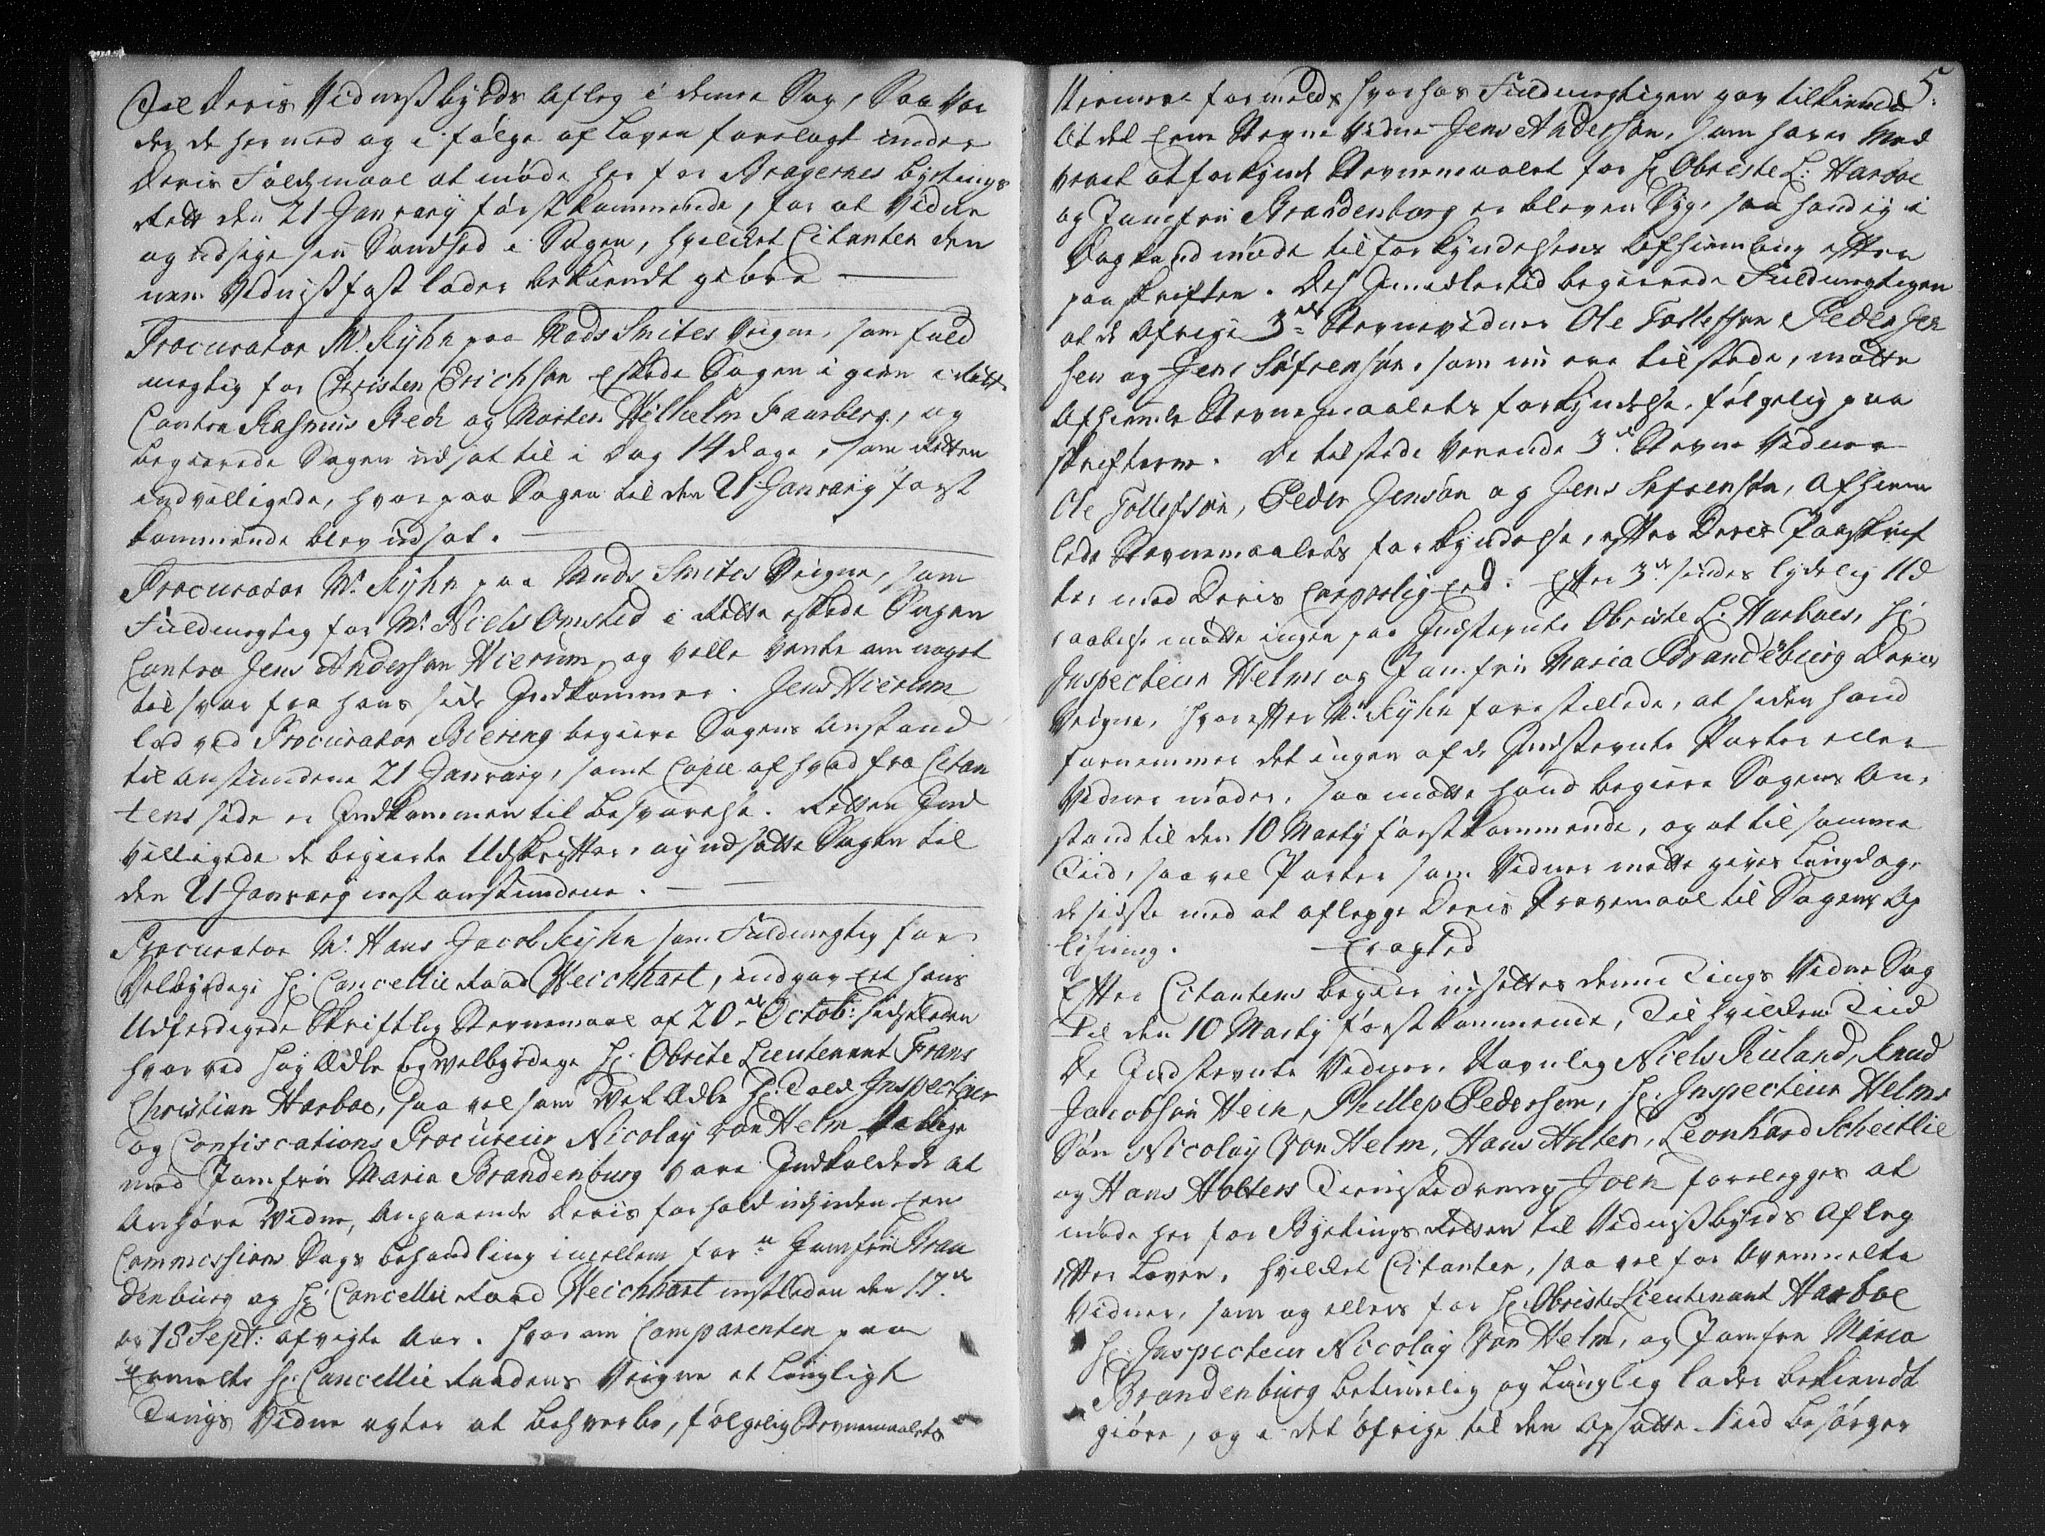 Til Deris Vidnesbyrds Afleg i denne Sag, Saa vor
der de hermed og i følge af Loven forelagt under
Deris Faldzmaal at møde her for Bragernes Bytings
Rett den 21 Januarij førstkommende, for at Vidne
og udsige sin Sandhed i Sagen, hvilket Citanten den
nem Vidnisfast lader bekiendt giøre
Procurator Mr. Kyhn paa Mads Smites Veigne, som fuld
megtig for Christen Erichsøn Eskede Sagen igien i Rette
Contra Rasmus Beck og Morten Wilhelm Faarberg, og
begierede Sagen udsat til i Dag 14 dage, som Retten
indvilligede, hvorpaa Sagen til den 21 Januarij først
kommende blev udsat.
Procurator Mr. Kyhn paa Mads Smites Veigne, som
Fuldmegtig for Mr. Niels Omsted i Rette eskede Sagen
Contra Jens Anderssøn Hierum, og ville vente om noget
tilsvar fra hans side Indkommer. Jens Hierum
lod ved Procurator Biering begiere Sagens Anstand
til anstundene 21 Januarij, samt Copie af hvad fra Citan
tens side er Indkommen til besvarelse. Retten Ind
villigede de begierte Udskrifter, og udsatte Sagen til
den 21 Januarij nest anstundene.
Procurator Mr. Hans Jacob Kyhn som Fuldmegtig for
Velbyrdige Hr. Cancellie Raad Weichhart, indgav Et hans
Udferdigede Skriftlig Stevnemaal af 20de Octob: sidstleden
hvorved høyÆdle og velbyrdige Hr. Obriste Lieutenant Frans
Christian Harboe, saa vel som VelÆdle Hr. Told Inspecteur
og Confiscations Procureur Nicolay von Helm tillige
med Jomfru Maria Brandenburg vare Indkaldede at
Anhøre Vidne, Angaaende Deris forhold ved inden Een
Commissions Sags behandling imellem for n Jomfru Bran
denburg og Hr. Cancellie Raad Weichhart nestleden den 17de
og 18 Sept: afvigte Aar. Hvorom Comparenten paa
Ermelte Hr. Cancellie Raadens Veigne et lovligt
Tings Vidne agter at behverbe, følgelig Stevnemaalets
5.
Nermere formelds hvorhos Fuldmegtigen gav tilkiende
at det Eene Stevne Vidne Jens Anderssøn, som haver Med
veret at forkynde Stevnemaalet for Hr. Obriste L: Harboe
og Jomfru Brandenburg er bleven Syg, saa hand ey i
Dag kand møde til forkyndelsens Afhiemling efter
paaskriften. Des Imidlertid begierede Fuldmegtigen
at de øfrige 3de Stevnevidner Ole Tollefssøn Peder Jen
sen og Jens Søfrensøn, som nu ere tilstede, motte
Afhiemle Stevnemaalets forkyndelse, følgelig paa
skrifterne. De tilstede verende 3de Stevne Vidner
Ole Tollefsøn, Peder Jensøn og Jens Søfrensøn, afhiem
lede Stevnemaalets forkyndelse, efter Deris Paaskrif
ter med Deris Corporlig Eed. Efter 3de sindes lydelig Ud
raabelse mødte ingen paa Indstevnte Obriste L: Harboes, Hr.
Inspecteur Helms og Jomfru Maria Brandeburg Deris
Veigne, hvorefter Mr. Kyhn forestillede, at siden hand
fornemmer det ingen af de Indstevnte Parter eller
Vidner møder, saa motte hand begiere Sagens An,
stand til den 10 Martij førstkommende, og at til samme
Tiid, saavel Parter som Vidner motte gives Laugdag,
de sidste med at aflegge Deris Prøvemaal til Sagens Op
lysning. Eragted
Efter Citantens begier udsettes denne Tings Vidne Sag
Til den 10 Martij førstkommende, Til hvilken Tiid
De Indstevnte Vidner, Navnlig Niels Ruland, Knud
Jacobsøn Hein, Phillep Pedersøn, Hr. Inspecteur Helms
Søn Nicolay von Helm, Hans Holter, Leonhard Scheitlie
og Hans Holters Tienistedreng Joen forelegges at
møde her for Bytings Retten til Vidnisbyrds Afleg
Efter Loven, hvilket Citanten, saa vel for Ovenmelte
Vidner, som og ellers for Hr. Obriste Lieutenant Harboe
Hr. Inspecteur Nicolay von Helm, og Jomfru Maria
Brandenburg betimelig og lovlig lader bekiendt
giøre, og i det øfrige til den Opsatte tiid besørger